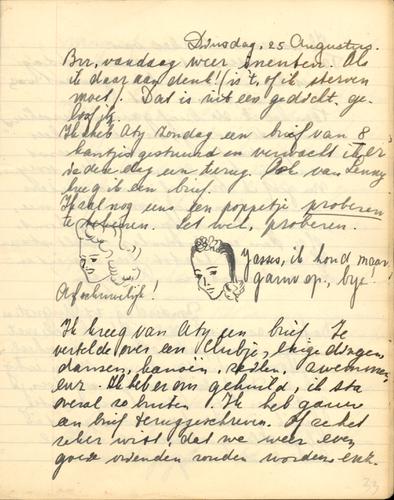 Dinsdag, 25 Augustus.
Brr, vandaag weer inenten. Als
ik daar aan denk! (is 't, of ik sterven
moet). Dat is uit een gedicht, ge-
loof ik.
Ik heb Aty Zondag een brief van 8
kantjes gestuurd en verwacht ik er
in deze dag een terug. Ook van Lenny
kreeg ik een brief.
Ik zal nog eens een poppetje proberen
te tekenen. Let wel, proberen.
Jasses, ik houd maar
gauw op, bye!
Afschuwelijk!
Ik kreeg van Aty een brief. Ze
vertelde over een clubje, enige dingen,
dansen, kanoën, zeilen, zwemmen,
enz. Ik heb erom gehuild, ik sta
overal zo buiten. Ik heb gauw
een brief teruggeschreven. Of ze het
zeker wist, dat we weer even
goede vrienden zouden worden, enz.
23